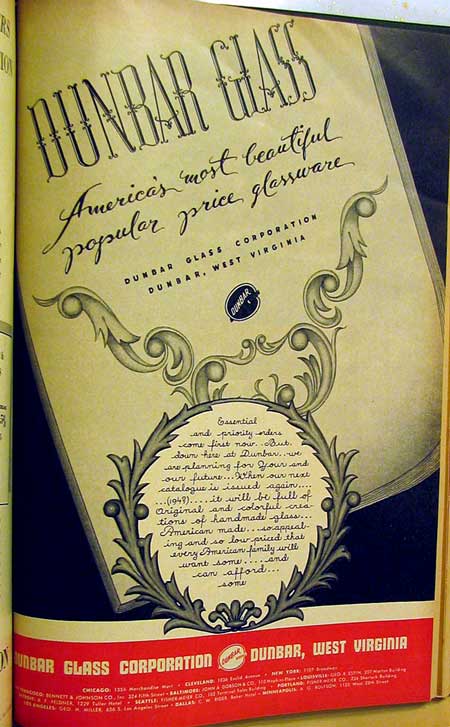 DUNBAR GLASS
America's most beautiful
popular price glassware
DUNBAR GLASS CORPORATION
DUNBAR, WEST VIRGINIA
DUNBAR
Essential
and priority orders
come first now..But.
down here at Dunbar..we
are planning for Your and
our future...When our next
catalogue is issued again....
...(1949).....it will be full of
Original and colorful crea-
tions of handmade glass...
American made...so appeal-
ing and so low priced that
every American family will
want some.....and
can afford...
some
DUNBAR GLASS CORPORATION DUNBAR DUNBAR, WEST VIRGINIA
CHICAGO: 1556 Merchandise Mart • CLEVELAND: 1836 Euclid Avenue • NEW YORK: 1107 Broadway
FRANCISCO: BENNETT & JOHNSON CO., Inc. 224 Fifth Street • BALTIMORE: JOHN A. DOBSON & CO., 110 Hopkins Place • LOUISVILLE: GEO. R. ESPIN, Building
P. F. FELDNER, 1229 Tuller Hotel • SEATTLE: FISHER-MEIER CO., Terminal Sales Building • PORTLAND: FISHER-MEIER CO., Sherlock Building
LOS ANGELES: GEO. H. MILLER, 656 S. Los Angeles Street • DALLAS: C. W. Baker Hotel • MINNEAPOLIS: Street